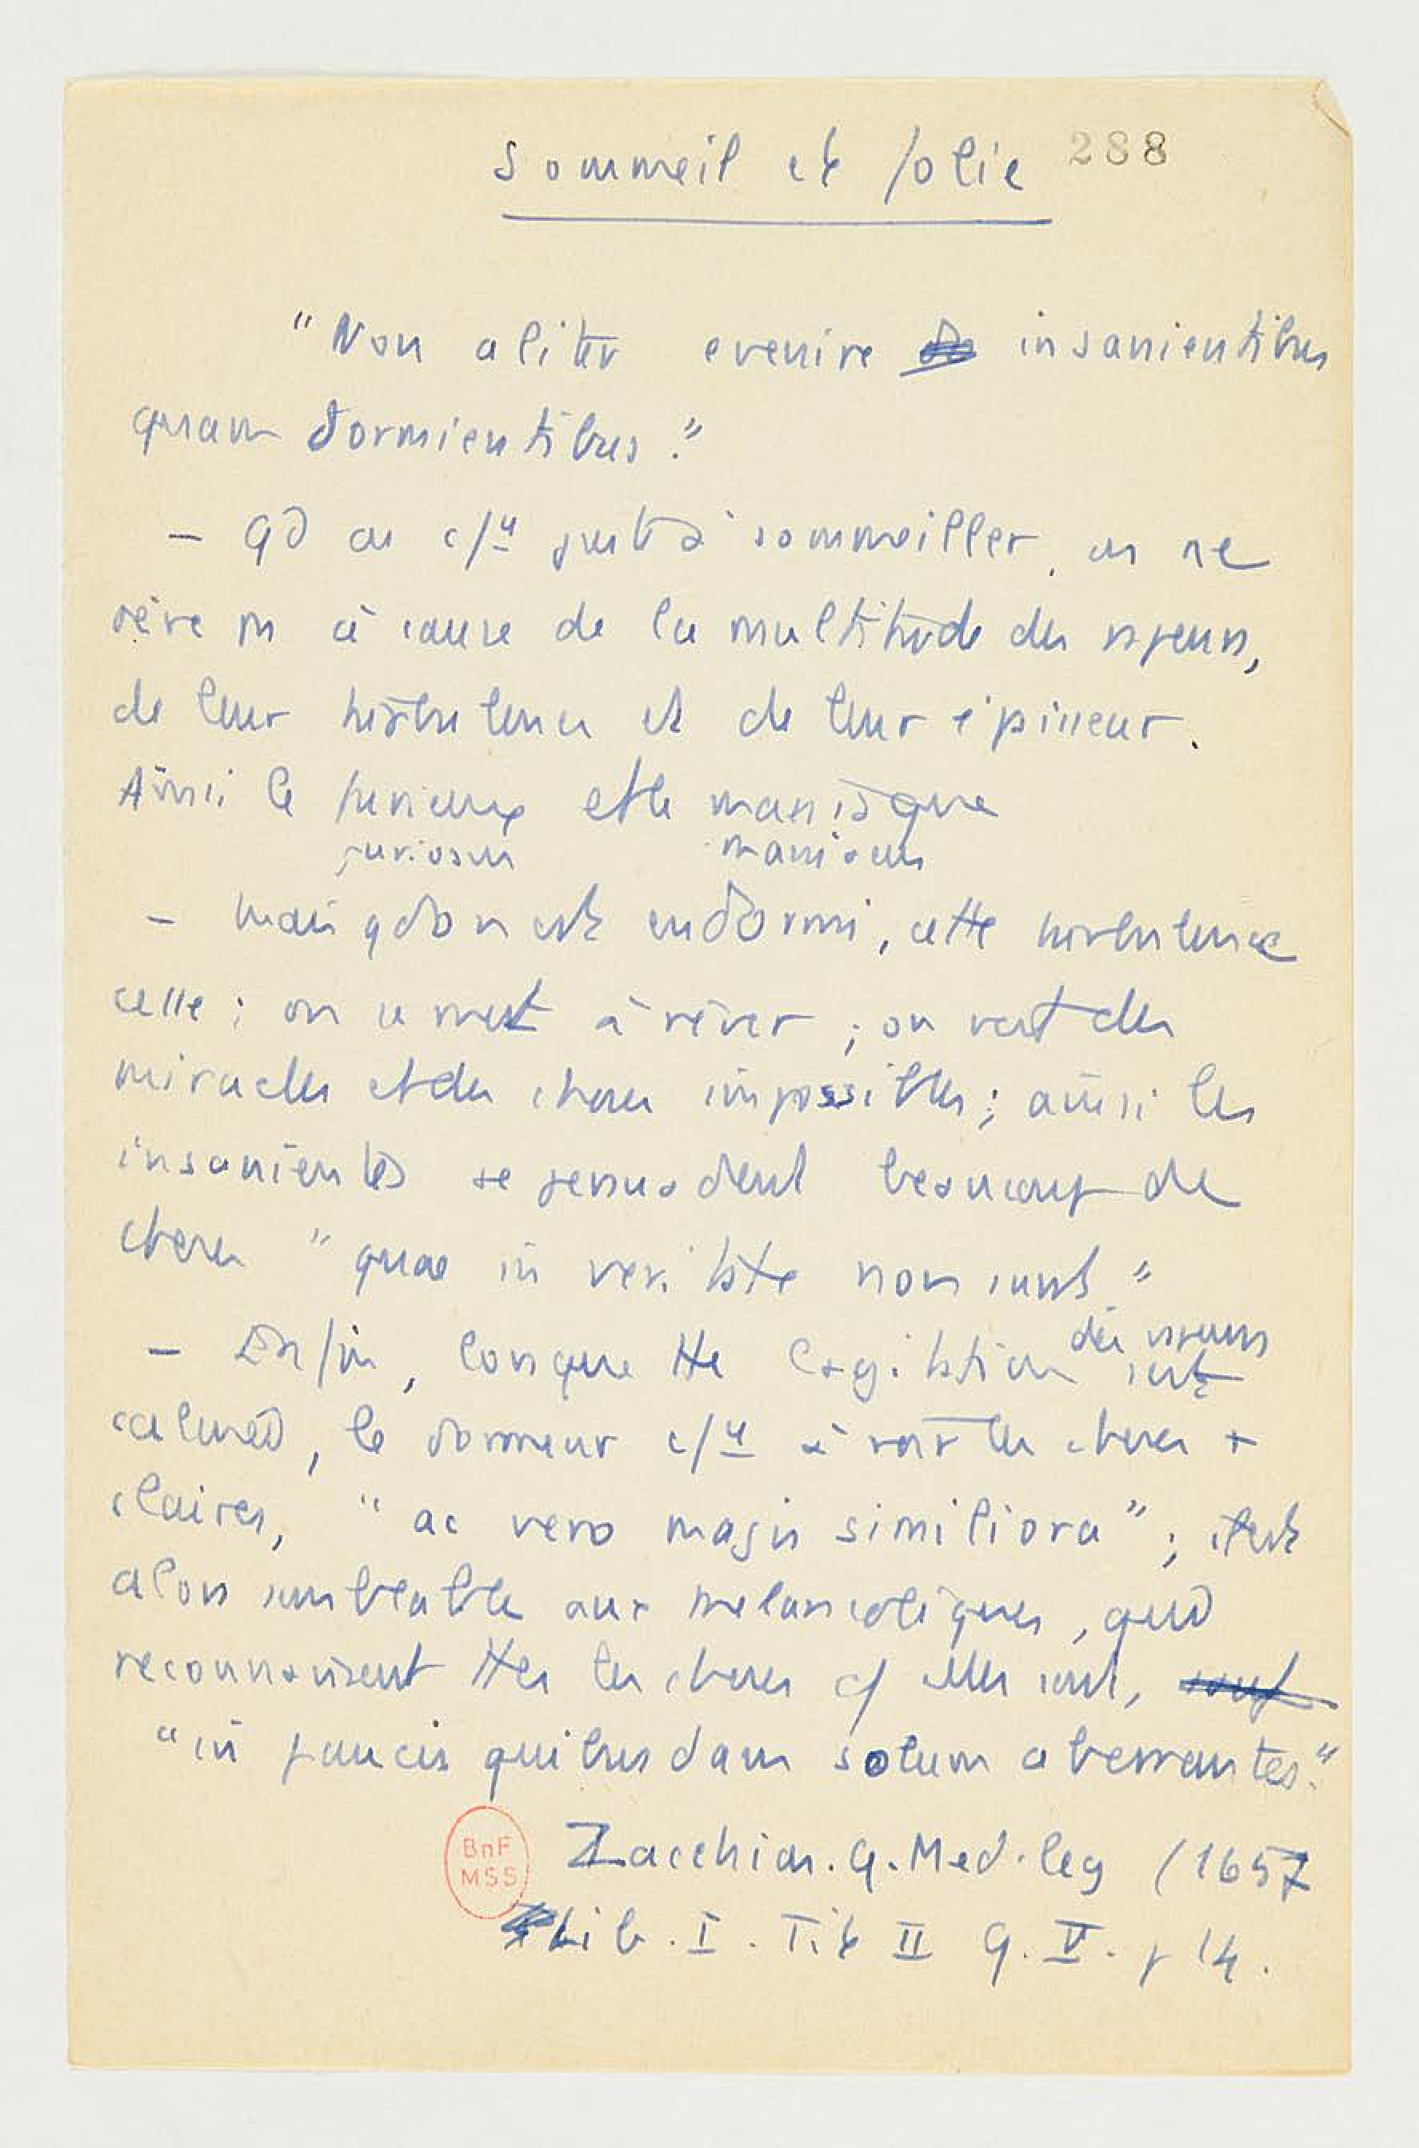 Sommeil et folie 288
"Non aliter evenire insanientibus
quam dormientibus."
— qd on c/ juste à sommeiller, on ne
rêve pas à cause de la multitude des vapeurs,
de leur turbulence et de leur épaisseur.
Ainsi le furieux et le maniaque
furiosus maniacus
— Mais qd on est endormi, cette turbulence
cesse ; on se met à rêver ; on voit des
miracles et des choses impossibles ; ainsi les
insanientes se persuadent beaucoup de
choses "quae in veritate non sunt"
— Enfin, lorsque tte l'agitation des vapeurs est
calmée, le dormeur c/ à voir les choses +
claires, "ac vero magis similiora" ; il est
alors semblable aux mélancoliques, qui
reconnaissent ttes les choses c/ elles sont,
"in paucis quibusdam solum aberrantes."
Zacchias. Q. Med. leg (1657
Lib. I. Tit II Q. V. p 14.
BnF
MSS